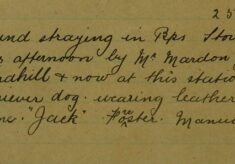 25
und straying in Pps Stou
afternoon by Mr Mardon
rahill & now at this statio
riever dog. wearing leather
"Jack" Pre Foster. Manu